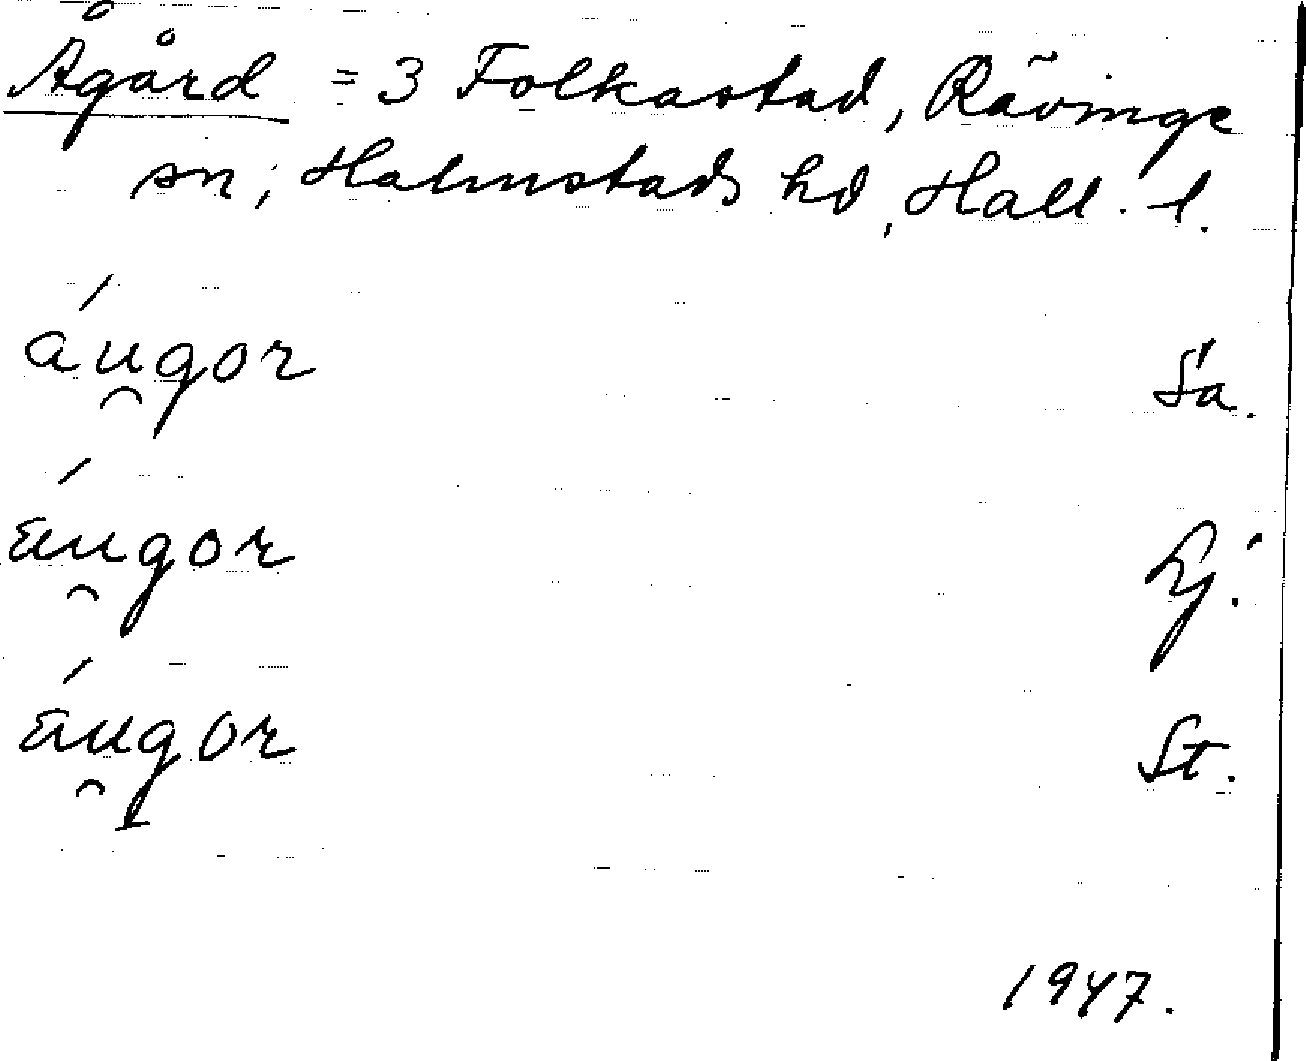 Ågård = 3 Folkastad, Rävinge
sn; Halmstads hd, Hall. l.
áu̯gor Sa.
ɛ́u̯gor Lj.
ɛ́u̯gor St.
1947.